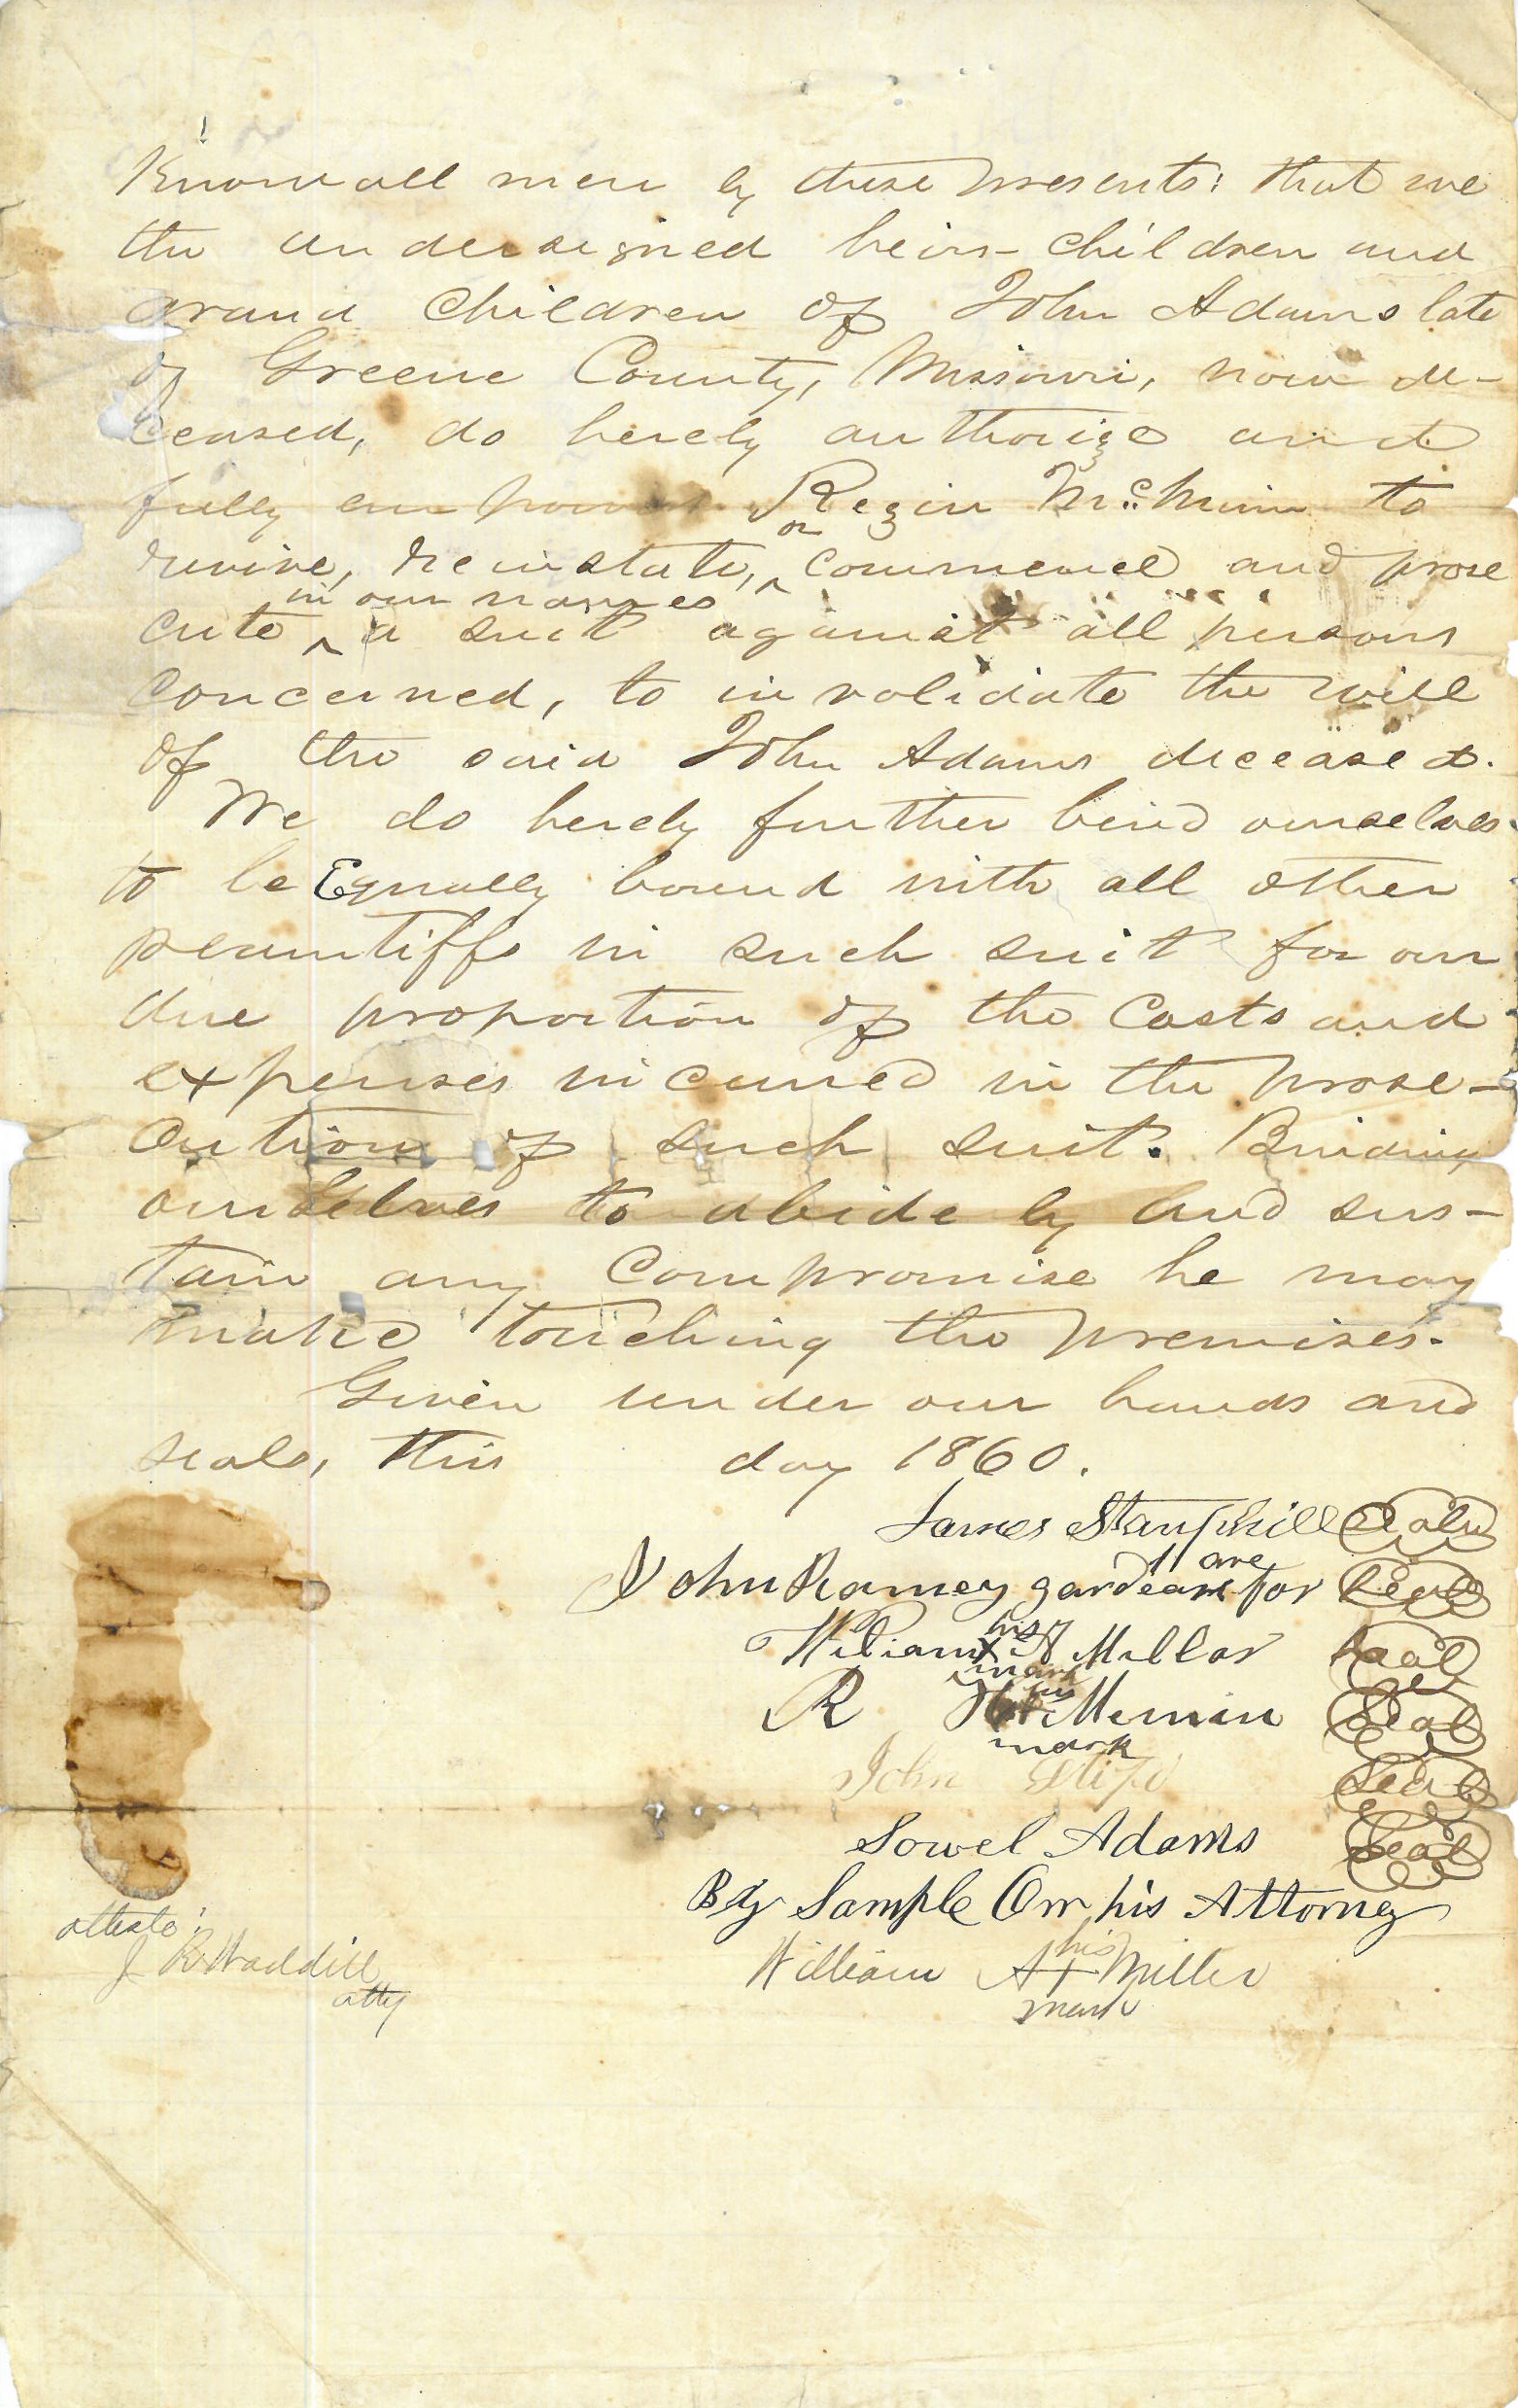 Know all men by these presents: that we
the undersigned heirs- children and
grand children of John Adams late
of Greene County, Missouri, now de-
ceased, do hereby authorize and
fully empower Rezin McMinn to
or
revive, reinstate, ^ commence and prose
in our names
cute ^ a suit against all persons
concerned, to invalidate the will
of the said John Adams deceased.
We do hereby further bind ourselves
to be Equally bound with all other
plaintiffs in such suit for our
due proportion of the Costs and
expenses incurred in the prose-
cution of such suit. Binding
ourselves to abide by and sus-
tain any compromise he may
make touching the premises.
Given under our hands and
seals, this day 1860.
James Stanphill Seal
John Ramey gardean for Seal
his
William X A Miller Seal
mark
his
R McMinn Seal
mark
John Seal
Sowel Adams Seal
By Sample Orr his Attorney
attest:
J R Waddill
atty
his
William A + Miller
mark